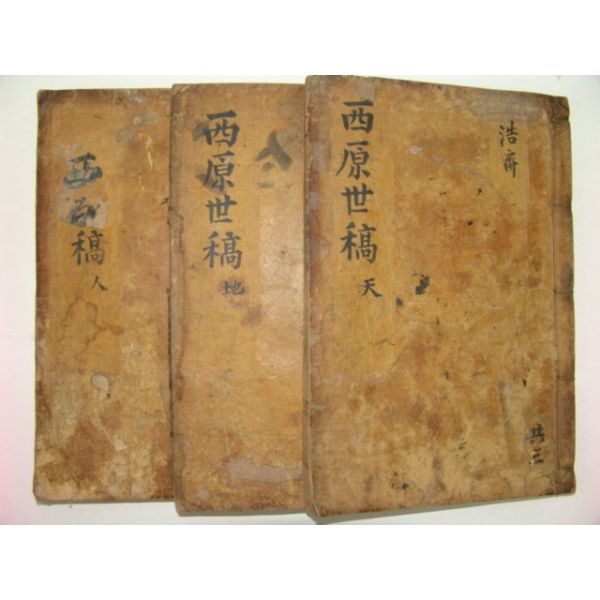 西原世稿
天
浩齋
共三
西原世稿
地
人
西
稿
人